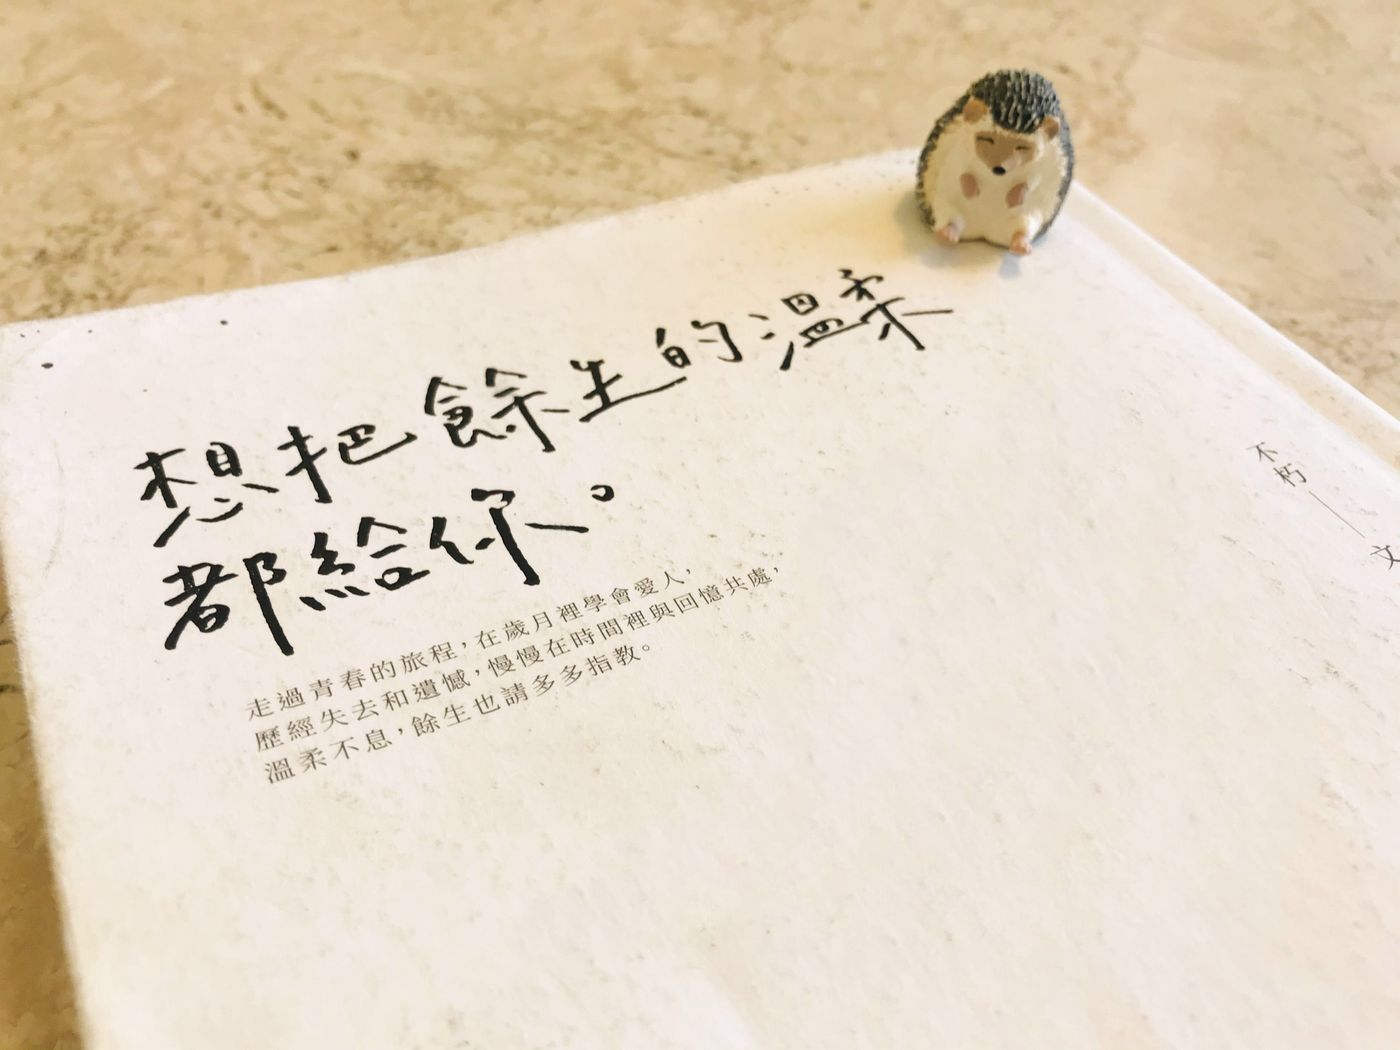 想把餘生的溫柔
都給你。
走過青春的旅程，在歲月裡學會愛人，
歷經失去和遺憾，慢慢在時間裡與回憶共處，
溫柔不息，餘生也請多多指教。
不朽｜文